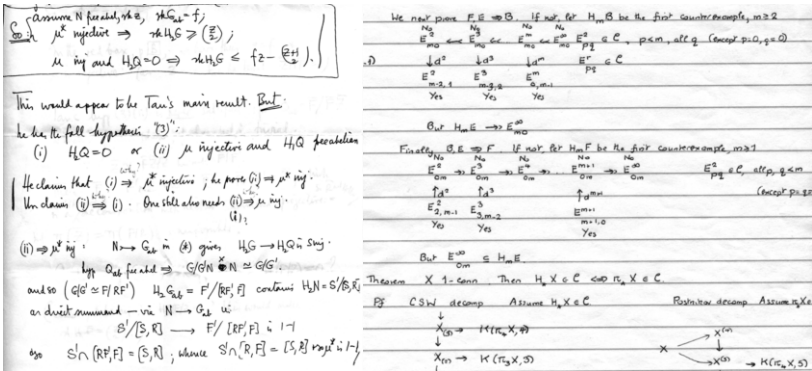 assume N free abel, rk z, rk G_ab = f;
So: μ* injective ⇒ rk H₂G ≥ (z 2);
μ inj and H₂Q=0 ⇒ rk H₂G ≤ fz − (z+1 2).
This would appear to be Tau's main result. But:
he has the foll hypothesis "(3)":
(i) H₂Q=0 or (ii) μ injective and H₁Q free abelian
He claims that (i) ⇒ μ* injective; he proves (ii) ⇒ μ* inj.
claims (ii) ⇒ (i). One still also needs (ii) ⇒ μ inj.
(ii) ⇒ μ* inj: N → G_ab in (*) gives H₂G → H₂Q is surj.
hyp Q_ab free abel ⇒ G/G'N × N ≃ G/G'.
and so (G/G' ≃ F/RF') H₂G_ab = F'/[RF',F] contains H₂N = S'/[S,R]
as direct summand — via N → G_ab
S'/[S,R] → F'/[RF',F] is 1-1
S'∩[RF',F] = [S,R]; whence S'∩[R,F] = [S,R] μ* is 1-1
We next prove F,E ⇒ B. If not, let HₘB be the first counterexample, m≥2
No No No No
E²ₘ₀ E³ₘ₀ Eᵐₘ₀ E^∞ₘ₀ E²_pq ∈ C, p<m, all q (except p=0, q=0)
↓d² ↓d³ ↓dᵐ E^r_pq ∈ C
E²ₘ₋₂,₁ E³ₘ₋₃,₂ Eᵐ₀,ₘ₋₁
Yes Yes Yes
But HₘE →→ E^∞ₘ₀
Finally B,E ⇒ F. If not, let HₘF be the first counterexample, m≥1
No No No No No
E²₀ₘ → E³₀ₘ → E⁴₀ₘ → ... E^{m+1}₀ₘ → E^∞₀ₘ E²_pq ∈ C, all p, q<m
↑d² ↑d³ ↑d^{m+1} (except p=q=
E²₂,ₘ₋₁ E³₃,ₘ₋₂ E^{m+1}ₘ₊₁,₀
Yes Yes Yes
But E^∞₀ₘ ⊆ HₘE
Theorem X 1-conn. Then H_*X ∈ C ⇔ π_*X ∈ C.
Pf CSW decomp Assume H_*X ∈ C Postnikov decomp Assume π_*X ∈
↓
→ K(π₃X, X⁽ⁿ⁾
↓ X ↓
→ K(π₃X, X⁽ⁿ⁾ → K(π